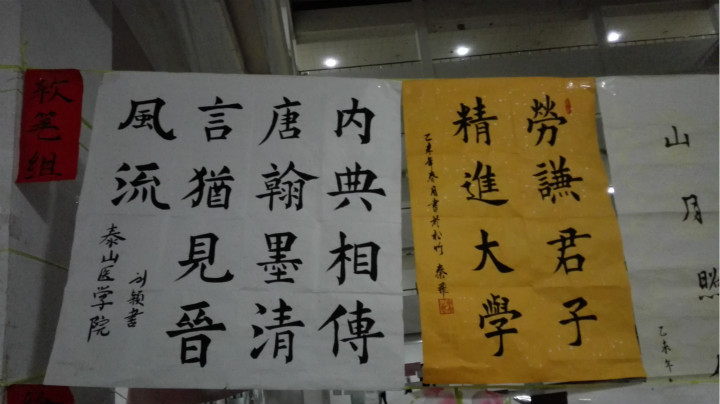 软笔组
内典相傳
唐翰墨清
言猶見晉
風流
刘颖書
泰山医学院
勞謙君子
精進大學
乙未年冬月書於松竹
山月照
乙未年